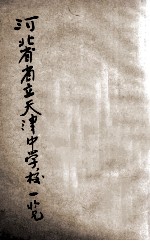 河北省省立天津中学校一览